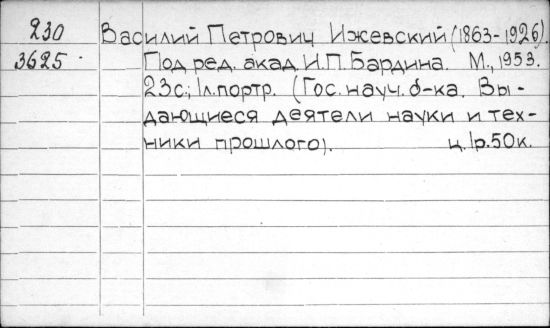 230 Василий Петрович Ижевский (1863-1926).
3625 Под ред. акад. И.П. Бардина. М., 1953.
23с.; 1л.портр. (Гос. науч. б-ка. Вы-
дающиеся деятели науки и тех-
ники прошлого). ц. 1р.50к.